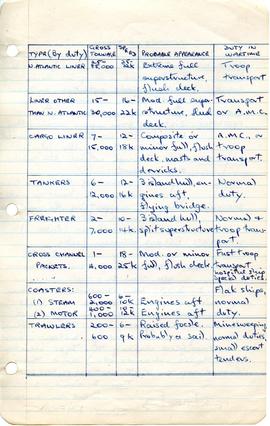 TYPE (By duty) GROSS TONNAGE SPEED PROBABLE APPEARANCE DUTY IN WARTIME
N.ATLANTIC LINER 25- 85,000 25- 32k Extreme full Troop
superstructure, transport
flush deck.
LINER OTHER 15- 16- Mod. full supe- Transport
THAN N.ATLANTIC 30,000 22k rstructure, flush or A.M.C.
deck.
CARGO LINER 7- 12- Composite or A.M.C., or
15,000 18k minor full, flush troop
deck, masts and transport.
derricks.
TANKERS 6- 12- 3 island hull, en- Normal
12,000 16k gines aft, duty.
flying bridge.
FREIGHTER 2- 10- 3 island hull, Normal &
7,000 14k split superstructure troop trans-
port.
CROSS CHANNEL 1- 18- Mod. or minor Fast troop
PACKETS. 4,000 25k full, flush deck transport,
hospital ship
special duties.
COASTERS: Flak ships,
(1) STEAM 600- 2,000 6- 10k Engines aft normal
(2) MOTOR 400- 1,000 8- 12k Engines aft duty.
TRAWLERS 200- 6- Raised focsle. Minesweeping
600 9k Probably a sail. normal duties,
small escort
tenders.